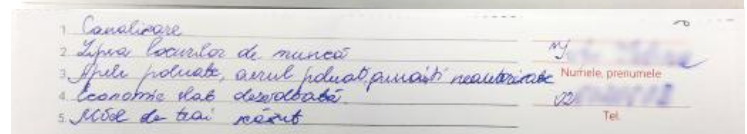 1 Canalizare
2 Lipsa locurilor de muncă
3 Apele poluate, aerul poluat, gunoiști neautorizate
4 Economie slab dezvoltată
5 Nivel de trai scăzut
Numele, prenumele
Tel.